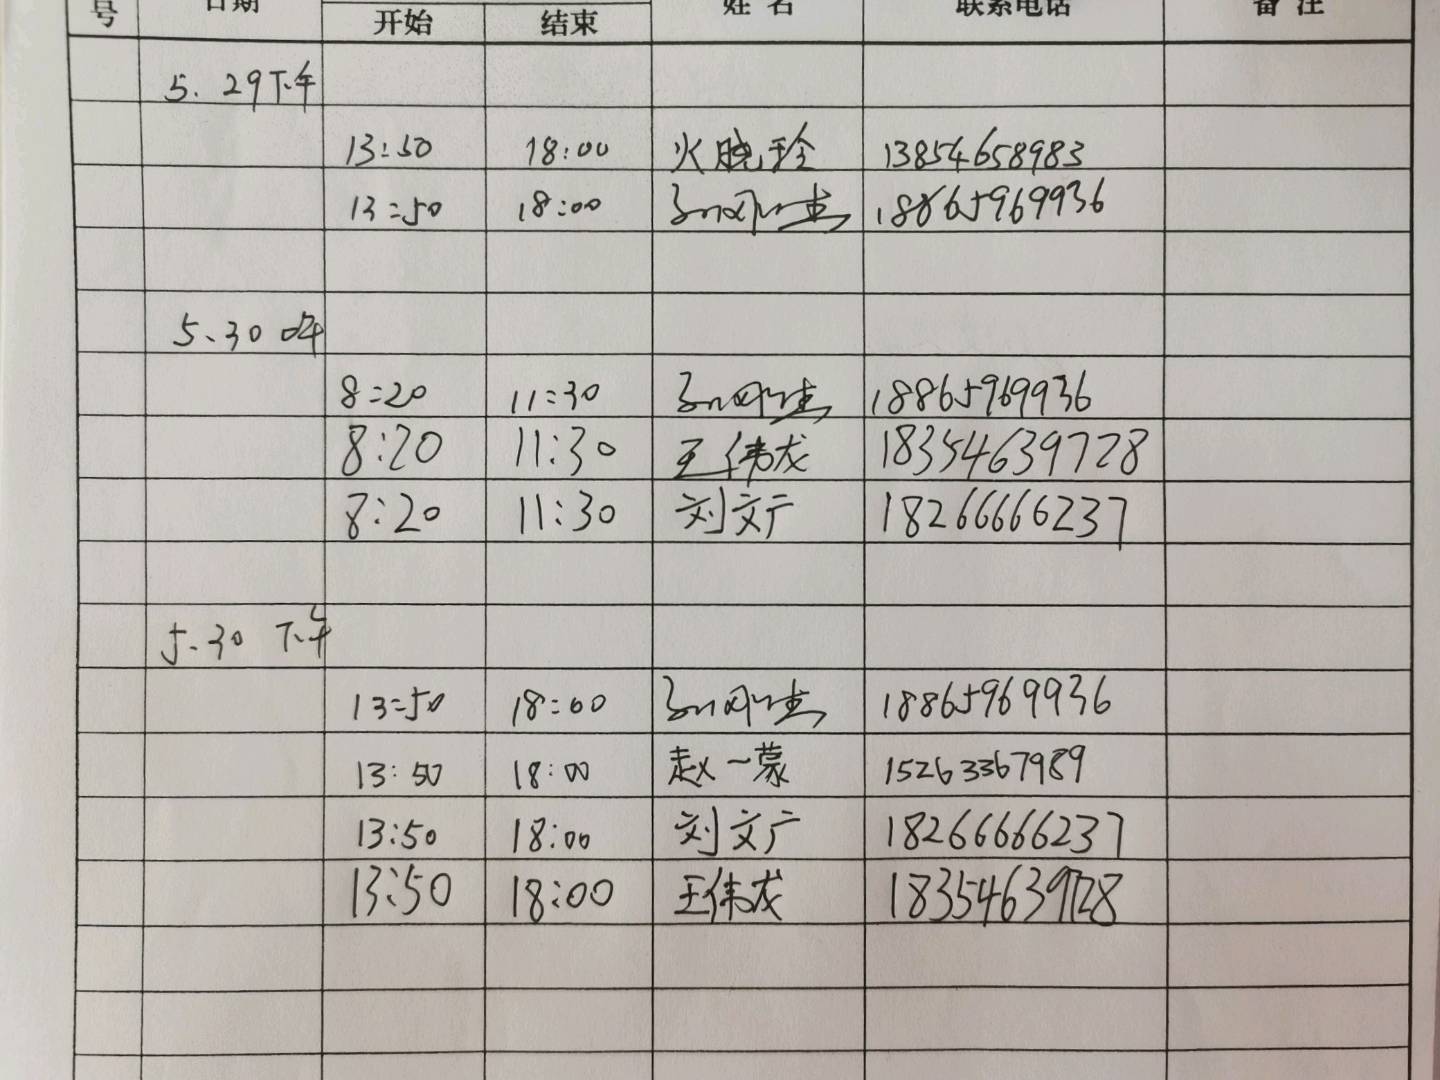 号 日期 开始 结束 姓名 联系电话 备注
5.29下午
13:50 18:00 火晓玲 13854658983
13:50 18:00 18865969936
5.30 上午
8:20 11:30 18865969936
8:20 11:30 王伟龙 18354639728
8:20 11:30 刘文广 18266666237
5.30 下午
13:50 18:00 18865969936
13:50 18:00 赵一蒙 15263367989
13:50 18:00 刘文广 18266666237
13:50 18:00 王伟龙 18354639728